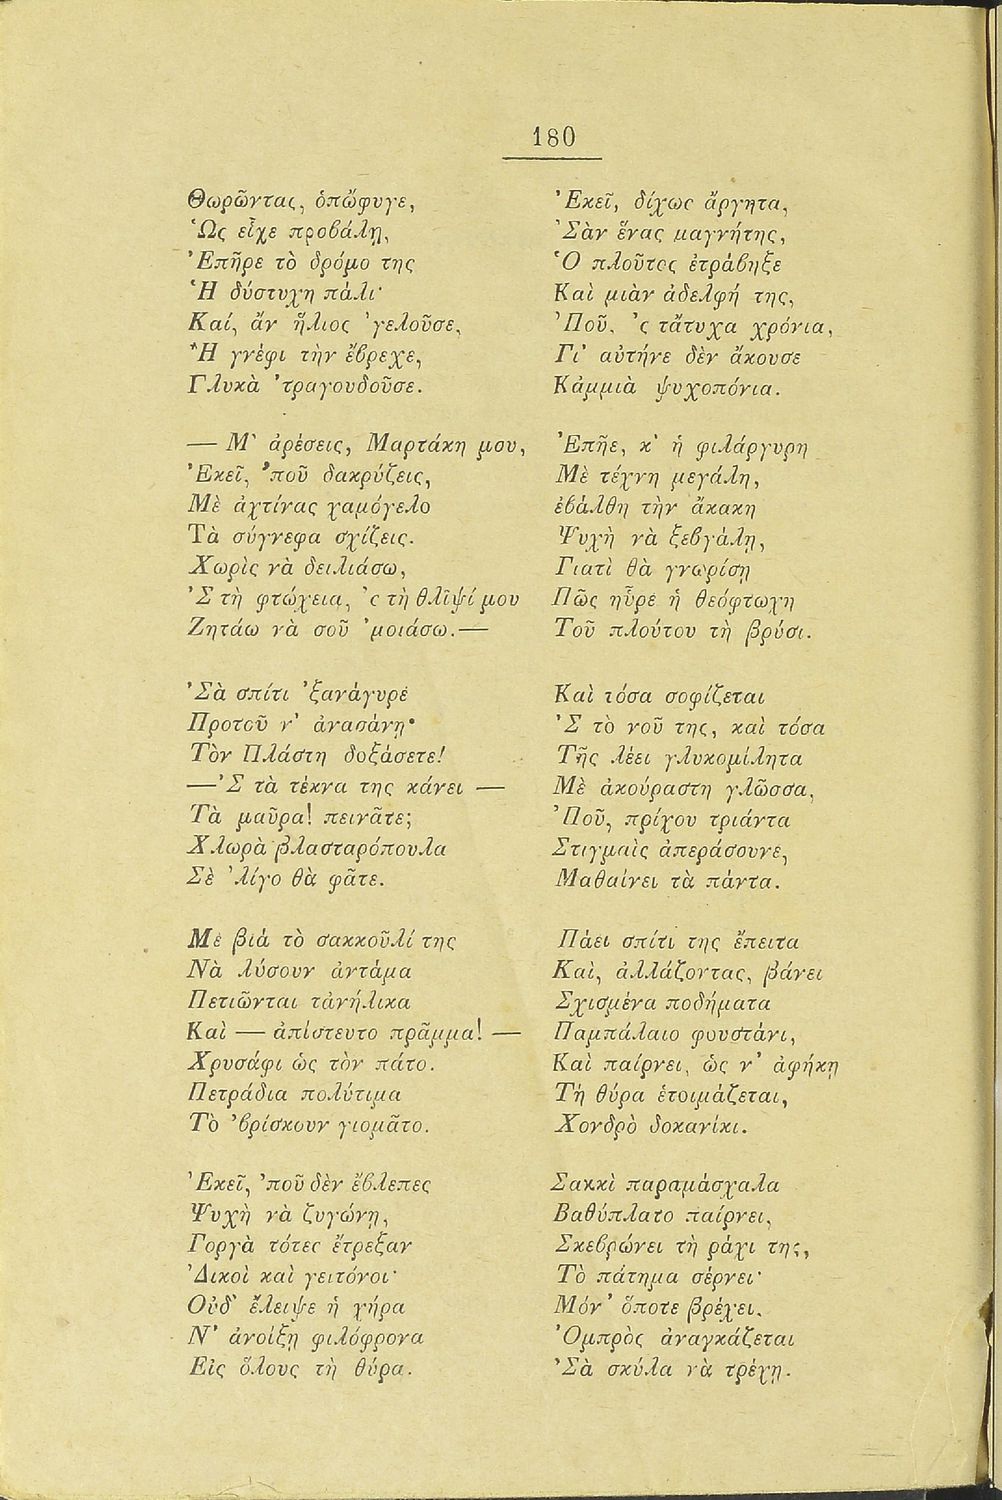 180
Θωρῶντας, ὁπὤφυγε,
Ὡς εἶχε προβάλῃ,
Ἐπῆρε τὸ δρόμο της
Ἡ δύστυχη πάλι·
Καί, ἄν ἥλιος 'γελοῦσε,
Ἢ γνέφι τὴν ἔβρεχε,
Γλυκὰ 'τραγουδοῦσε.

— Μ' ἀρέσεις, Μαρτάκη μου,
Ἐκεῖ, 'ποῦ δακρύζεις,
Μὲ ἀχτίνας χαμόγελο
Τὰ σύγνεφα σχίζεις.
Χωρὶς νὰ δειλιάσω,
'Σ τὴ φτώχεια, 'ς τὴ θλῖψί μου
Ζητάω νὰ σοῦ 'μοιάσω.—

'Σὰ σπίτι 'ξανάγυρε
Προτοῦ ν' ἀνασάνῃ·
Τὸν Πλάστη δοξάσετε!
—'Σ τὰ τέκνα της κάνει —
Τὰ μαῦρα! πεινᾶτε;
Χλωρὰ βλασταρόπουλα
Σὲ 'λίγο θὰ φᾶτε.

Μὲ βιὰ τὸ σακκοῦλί της
Νὰ λύσουν ἀντάμα
Πετιῶνται τἀνήλικα
Καὶ — ἀπίστευτο πρᾶμμα! —
Χρυσάφι ὡς τὸν πάτο.
Πετράδια πολύτιμα
Τὸ 'βρίσκουν γιομᾶτο.

Ἐκεῖ, 'ποῦ δὲν ἔβλεπες
Ψυχὴ νὰ ζυγώνῃ,
Γοργὰ τότες ἔτρεξαν
Ἀικοὶ καὶ γειτόνοι·
Οὐδ' ἔλειψε ἡ χήρα
Ν' ἀνοίξῃ φιλόφρονα
Εἰς ὅλους τὴ θύρα.

Ἐκεῖ, δίχως ἄργητα,
'Σὰν ἕνας μαγνήτης,
Ὁ πλοῦτος ἐτράβηξε
Καὶ μιὰν ἀδελφή της,
'Ποῦ, 'ς τἄτυχα χρόνια,
Γι' αὐτήνε δὲν ἄκουσε
Κἀμμιὰ ψυχοπόνια.

Ἐπῆε, κ' ἡ φιλάργυρη
Μὲ τέχνη μεγάλη,
ἐβάλθη τὴν ἄκακη
Ψυχὴ νὰ ξεβγάλῃ,
Γιατὶ θὰ γνωρίσῃ
Πῶς ηὗρε ἡ θεόφτωχη
Τοῦ πλούτου τὴ βρύσι.

Καὶ τόσα σοφίζεται
'Σ τὸ νοῦ της, καὶ τόσα
Τῆς λέει γλυκομίλητα
Μὲ ἀκούραστη γλῶσσα,
'Ποῦ, πρίχου τριάντα
Στιγμαὶς ἀπεράσουνε,
Μαθαίνει τὰ πάντα.

Πάει σπίτι της ἔπειτα
Καὶ, ἀλλάζοντας, βάνει
Σχισμένα ποδήματα
Παμπάλαιο φουστάνι,
Καὶ παίρνει, ὡς ν' ἀφήκῃ
Τὴ θύρα ἑτοιμάζεται,
Χονδρὸ δοκανίκι.

Σακκὶ παραμάσχαλα
Βαθύπλατο παίρνει,
Σκεβρώνει τὴ ράχι της,
Τὸ πάτημα σέρνει·
Μόν' ὅποτε βρέχει.
Ὀμπρὸς ἀναγκάζεται
'Σὰ σκύλα νὰ τρέχῃ.